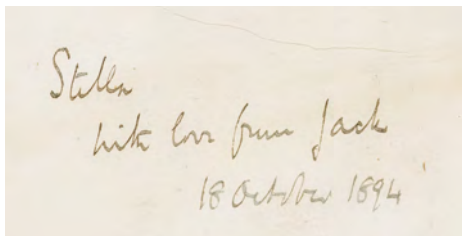 Stella
with love from Jack
18 October 1894